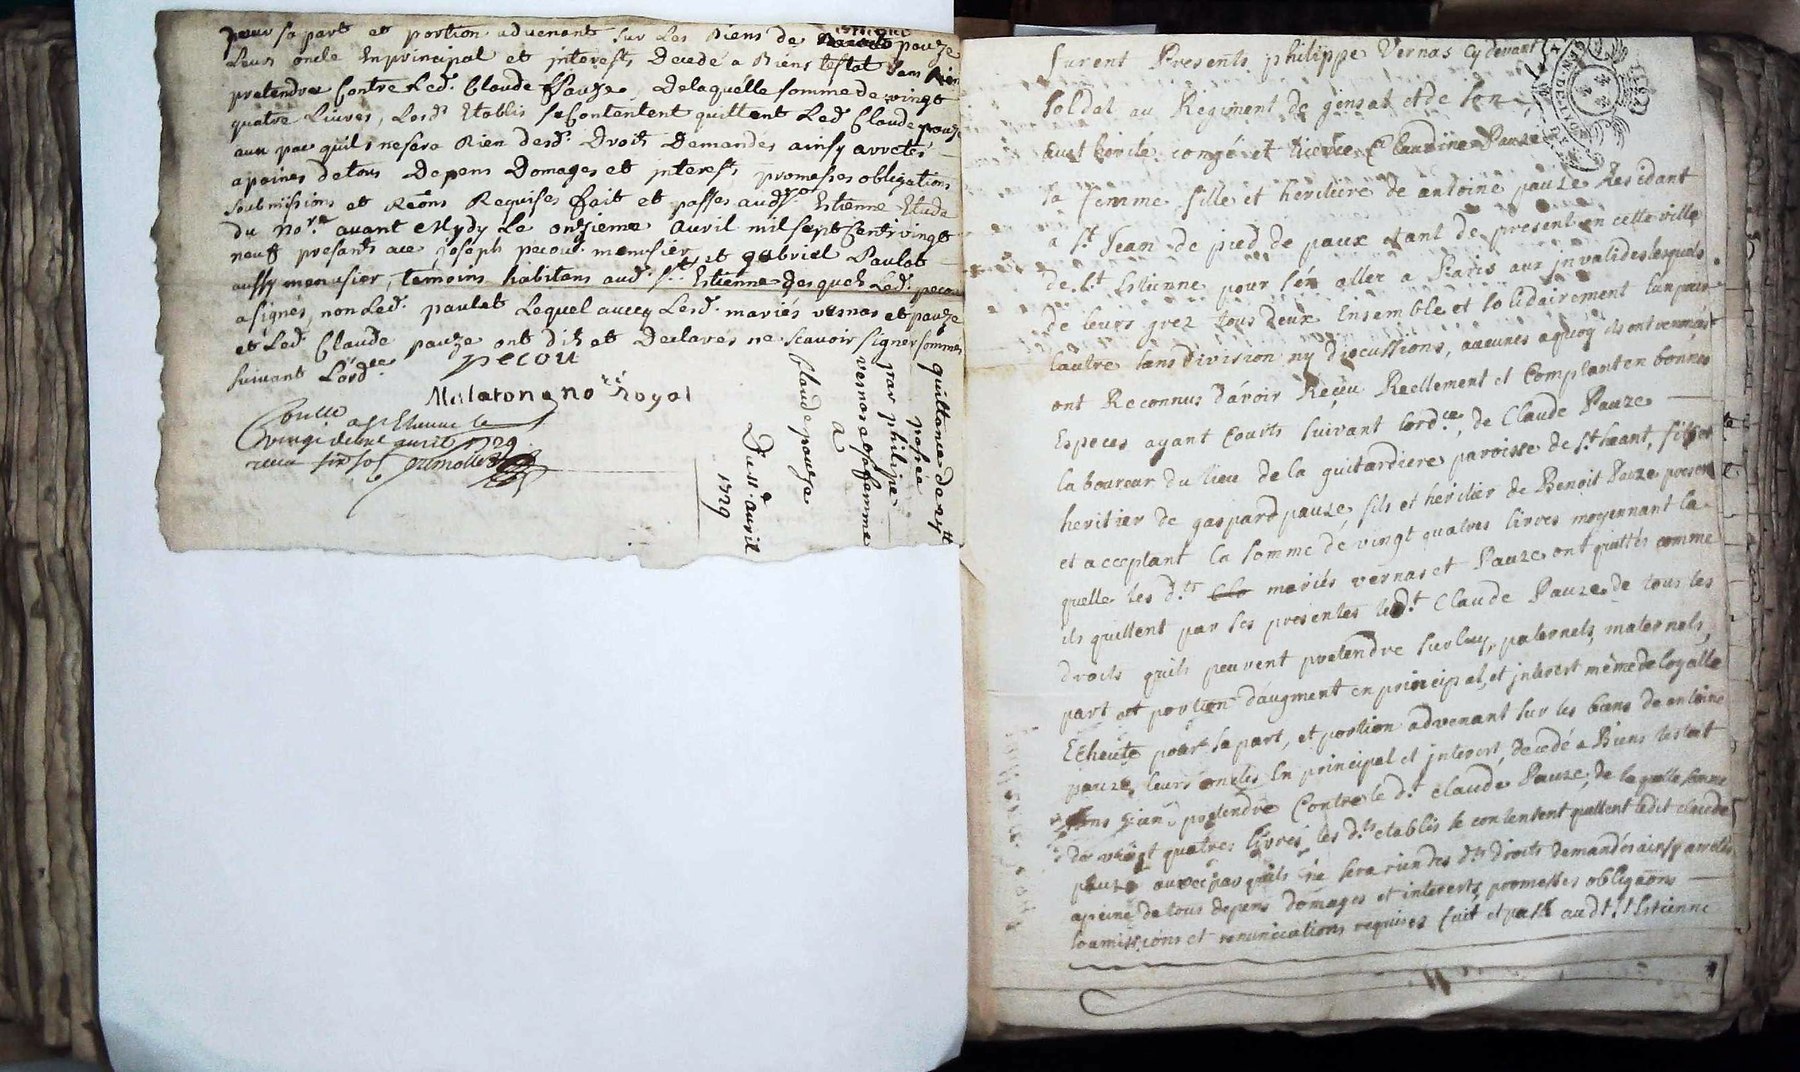 pour sa part et portion advenant sur les Biens de pauze
Leur oncle En principal et jnterests Decedé a Biens testat sans Rien
pretendre Contre Led. Claude Pauze, Delaquelle somme de vingt
quatre Livres, Lesd. Etablis se Contentent quittent Led. Claude pauze
aux pac quils ne sera Rien desd. Droits Demandés ainsy arretés
a peines de tous Depens Domages et jnterests promesses obligations
soubmissions et Requises fait et passés aud. Estienne Etude
du no.re avant Mydy Le onzieme avril mil sept Cent vingt
neuf presants ace joseph pecou menusier et gabriel Paulet
aussy menusier, temoins habitans aud. st. Estienne desquels Led. pecou
a signés, non Led. paulet Lequel avecq Lesd. mariés vernas et pauze
et Led. Claude pauze ont dit et Declarés ne scavoir signer sommes
suivant Lord.ce
pecou
Malaton no.re Royal
a st Etienne le
vingt avril 1729
receu six sols
quittance de 24lt
passée
par philipe
vernas et sa femme
A
Claude pauze
Du 11e avril
1729
furent Presents philippe Vernas cy devant
soldat au Regiment de gensat et de
congé et Claudine Pauze
sa femme fille et heritiere de antoine pauze Residant
a st Jean de pied de paux etant de present en cette ville
de st Estienne pour s'en aller a Paris aux jnvalides lesquels
de leurs grez tous deux Ensemble et solidairement l'un pour
lautre sans division ny discussions, aucunes aquoy ils ont renoncés
ont Reconnus davoir Reçeu Reellement et Comptant en bonnes
Especes ayant Cours suivant lord.ce, de Claude Pauze
laboureur du lieu de la guitardiere paroisse de st. heant, fils et
heritier de gaspard pauze, fils et heritier de Benoit Pauze present
et acceptant la somme de vingt quatres livres moyennant la
quelle les d.ts Cla mariés vernas et Pauze ont quittés comme
ils quittent par ses presentes le d.t Claude Pauze de tous les
droits quils peuvent pretendre sur luy, paternels, maternels,
part et portion d'augment en principal, et jnterest même de logalle
Echeute pour sa part, et portion advenant sur les biens de antoine
pauze, leurs oncles En principal et jnterest, decedé a Biens testat
sans rien pretendre Contre le d.t Claude Pauze, de laquelle somme
de vingt quatres livres, les d.ts etablis se contentent quittent ledit claude
pauze quils ne sera rien des d.ts droits demandés ainsy arretés
a peine de tous depens domages et interests, promesses obligaons
soumissions et renunciations requises fait et passé aud.t st Estienne